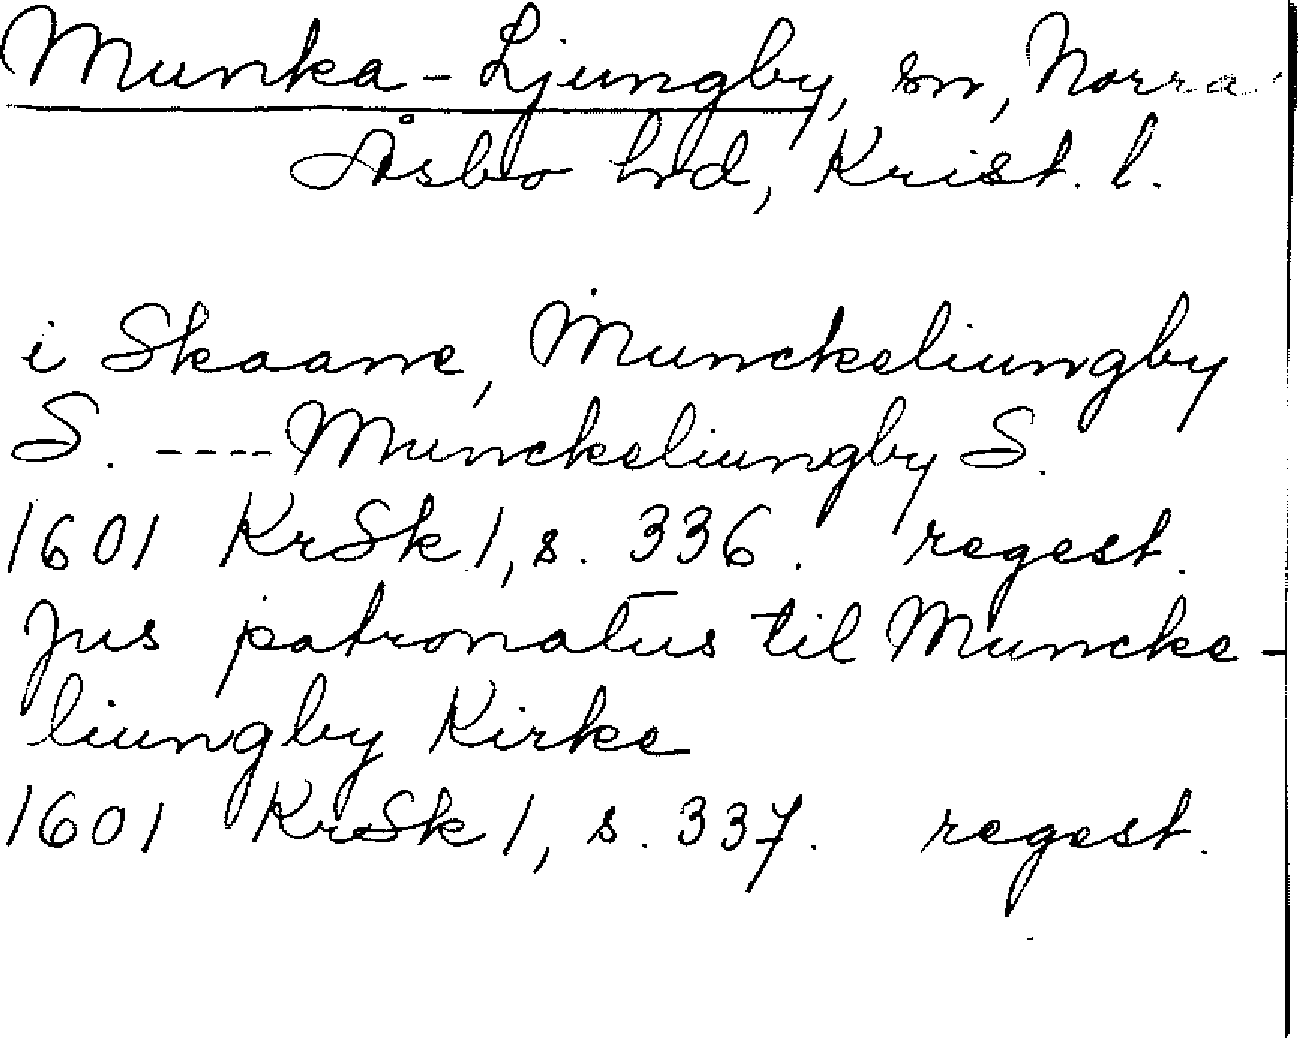 Munka-Ljungby, sn, Norra
Åsbo hd, Krist. l.
i Skaane, Munckeliungby
S. ---- Munckeliungby S.
1601 KrSk 1, s. 336. regest.
Jus patronatus til Muncke-
liungby Kirke
1601 KrSk 1, s. 337. regest.